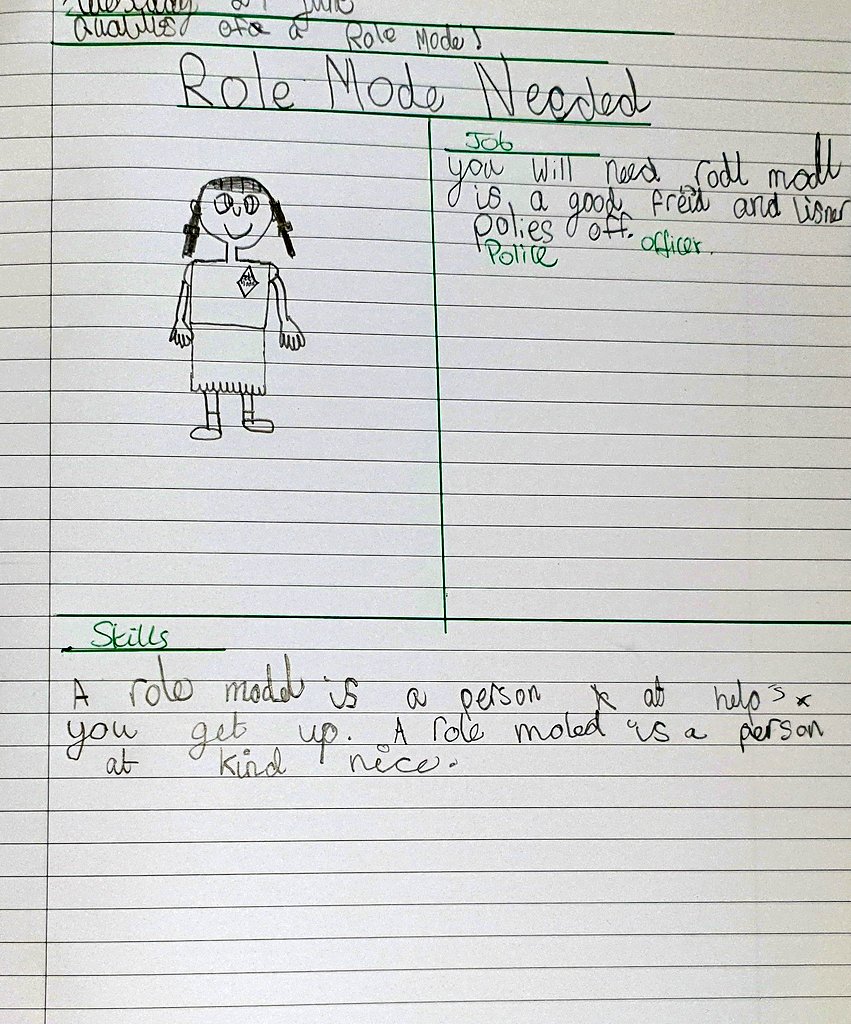 June
Qualities of a Role Model
Role Mode Needed
Job
you will need rodl modl
is a good freid and lisner
polies off.
Police officer.
Skills
A role model is a person x at help's x
you get up. A role moled is a person
at kind nice.